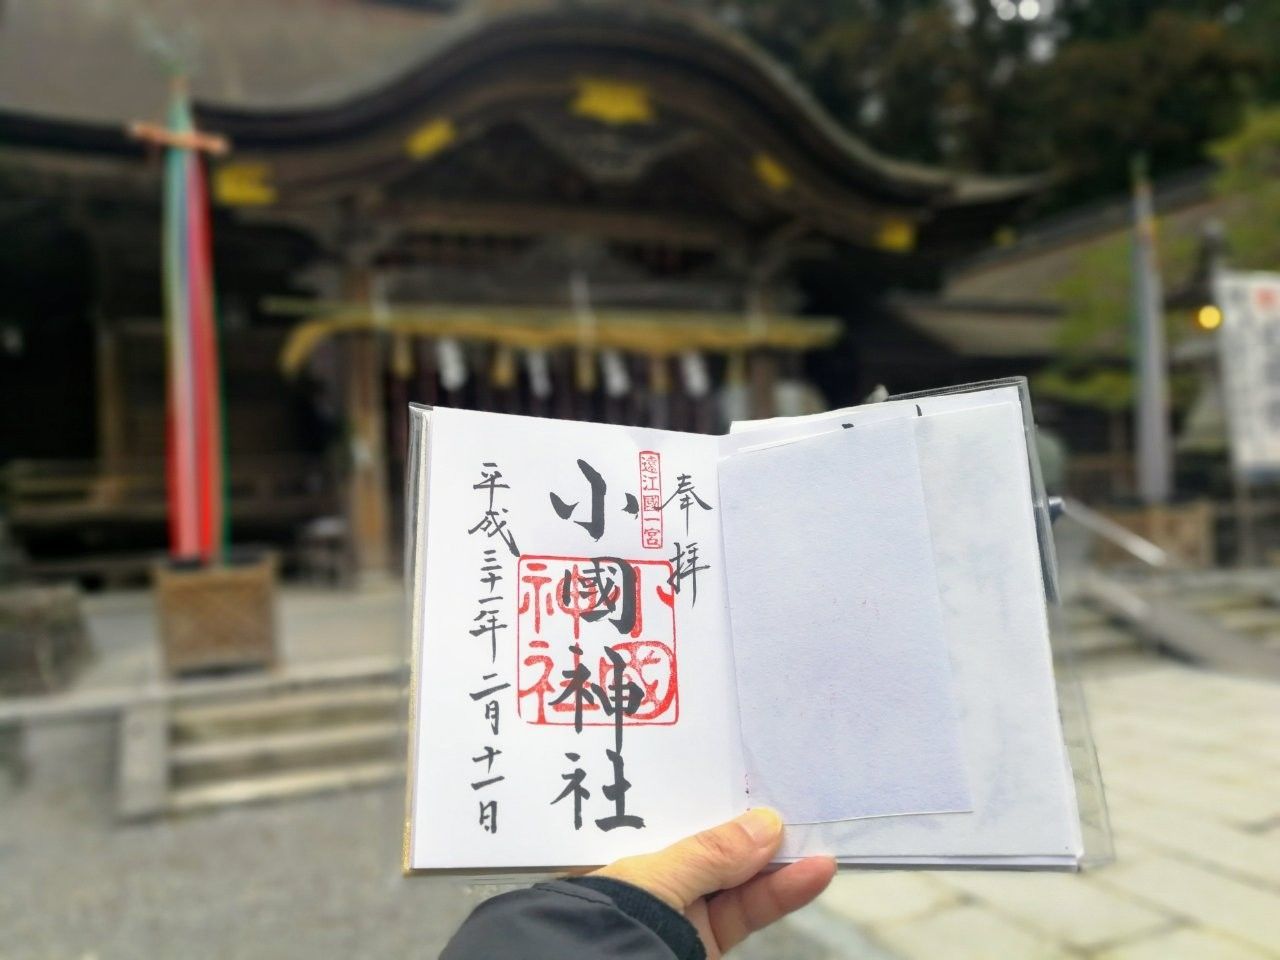 奉拝
遠江國一宮
小國神社
小國神社
平成三十一年二月十一日